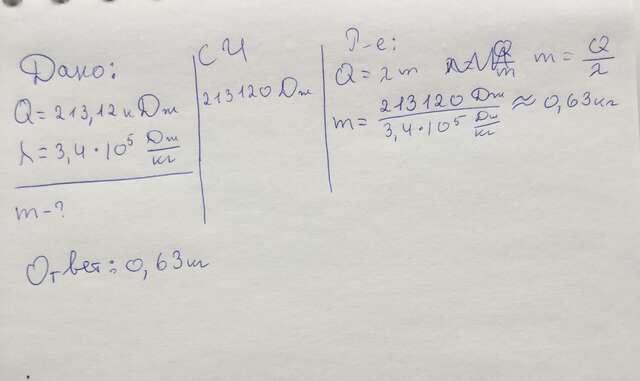 Дано:
Q = 213,12 кДж
λ = 3,4 · 10⁵ Дж/кг
m - ?
СИ
213120 Дж
Р-е:
Q = λm m = Q/λ
m = 213120 Дж / 3,4 · 10⁵ Дж/кг ≈ 0,63 кг
Ответ: 0,63 кг